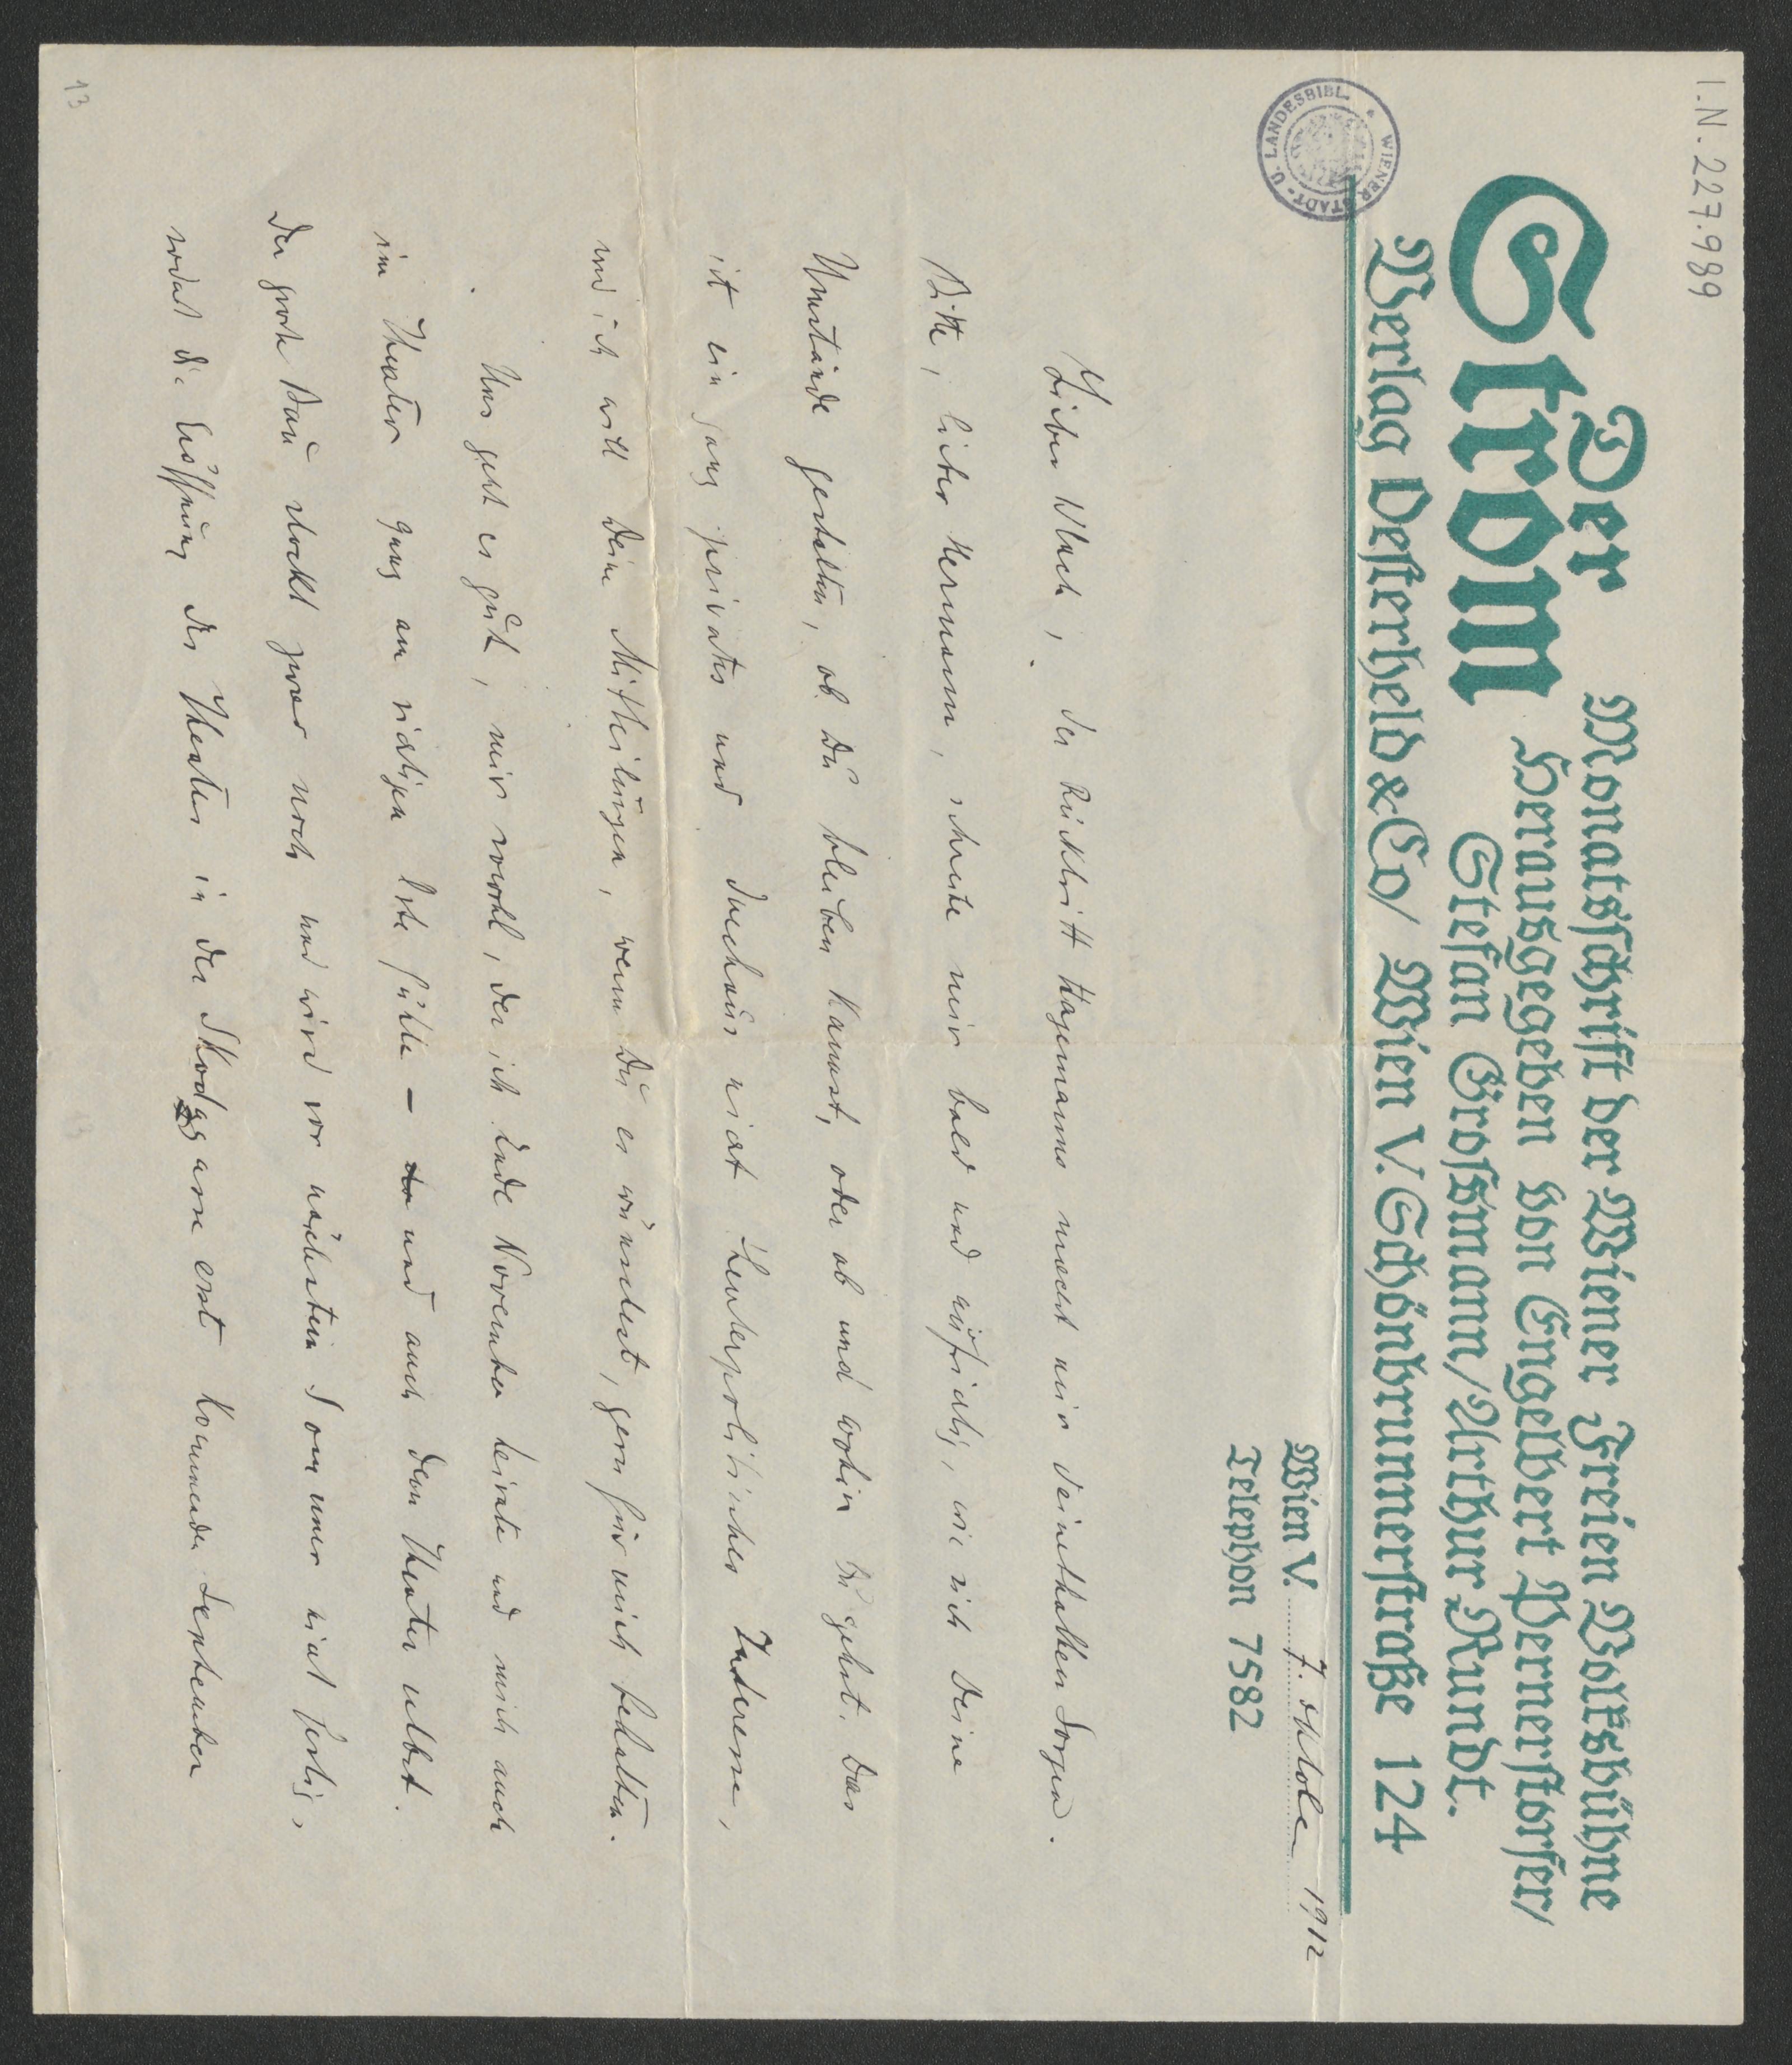 I.N. 227.989
Der
Strom
Monatsschrift der Wiener Freien Volksbühne
Herausgegeben von Engelbert Pernerstorfer/
Stefan Großmann/Arthur Rundt.
Verlag Oesterheld & Co/ Wien V. Schönbrunnerstraße 124
WIENER STADT- U. LANDESBIBL.
Wien V. 7. Oktober 1912
Telephon 7582
Lieber Wlach, der Rücktritt Hagemanns macht mir deinethalben Sorgen.
Bitte, lieber Hermann, schreibe mir bald und aufrichtig, wie sich Deine
Umstände gestalten, ob Du bleiben kannst, oder ob und wohin Du gehst. Das
ist ein ganz privates und durchaus nicht theaterpolitisches Interesse,
und ich will Deine Mittheilungen, wenn Du es wünschest, gern für mich behalten.
Uns geht es gut, mir sowohl, der ich Ende November heirate und mich auch
im Theater ganz am richtigen Orte fühle – und auch dem Theater selbst.
Der große Bau stockt zwar noch und wird vor nächstem Sommer nicht fertig,
sodaß die Eröffnung des Theaters in der Skodagasse erst kommenden September
13